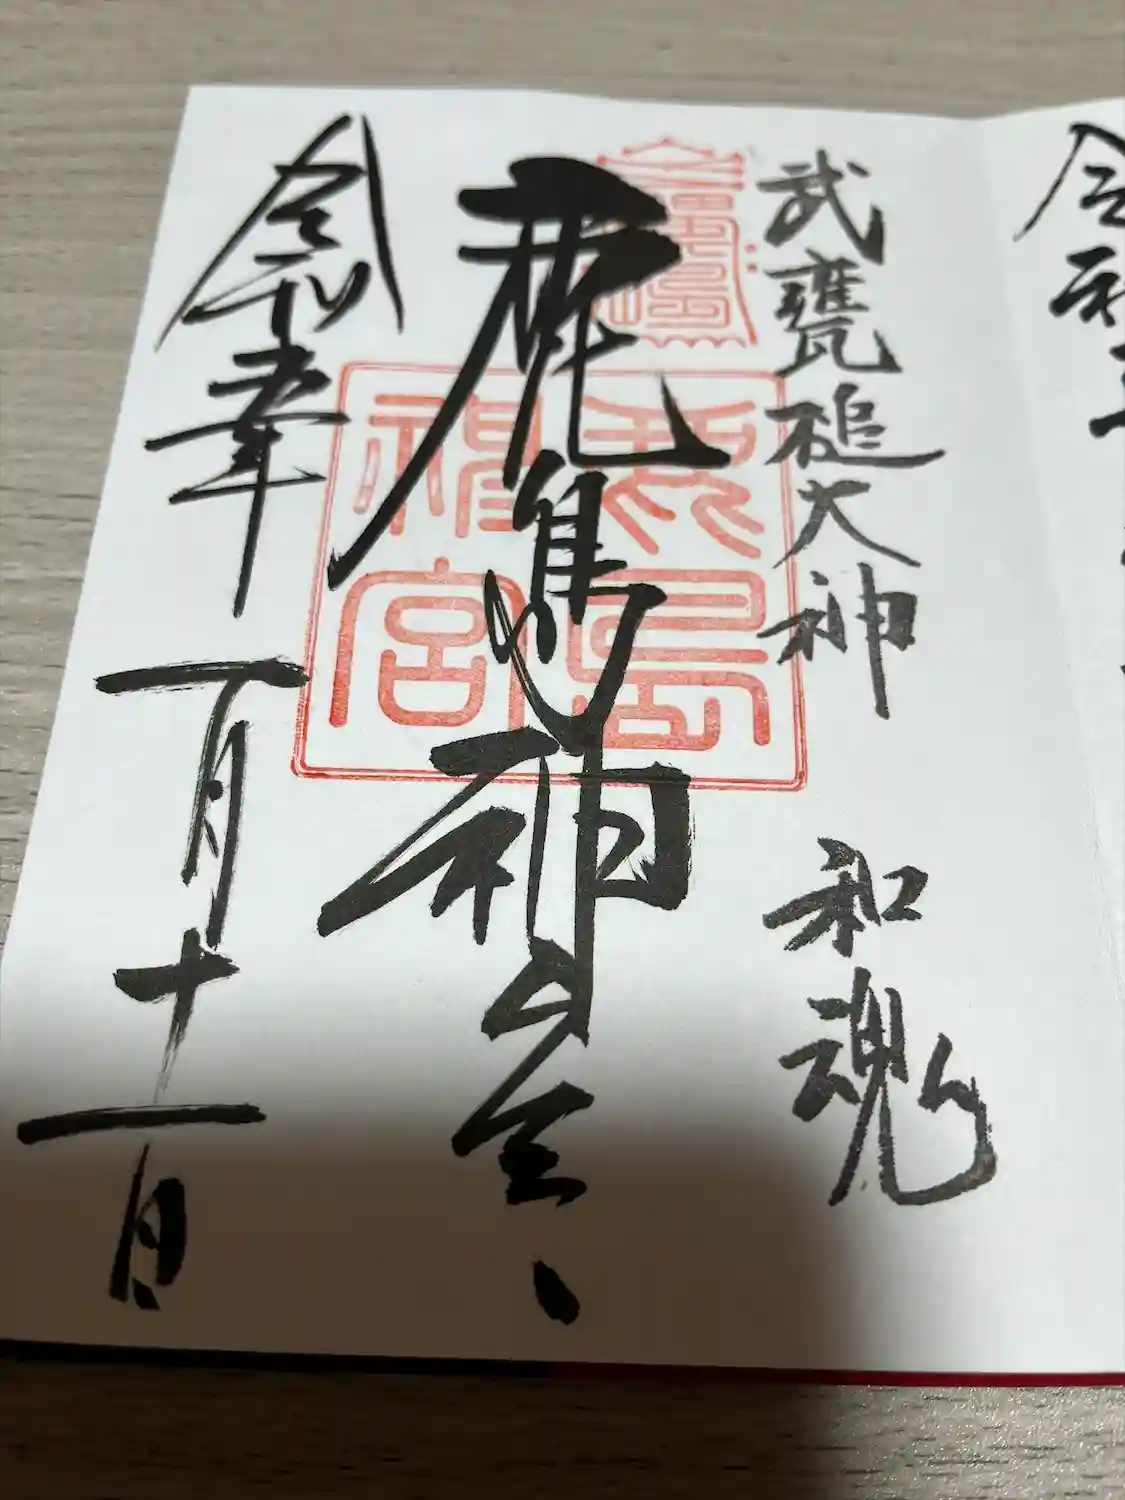 令和
武甕槌大神 和魂
鹿島神宮
鹿島
神宮
令和五年一月十一日